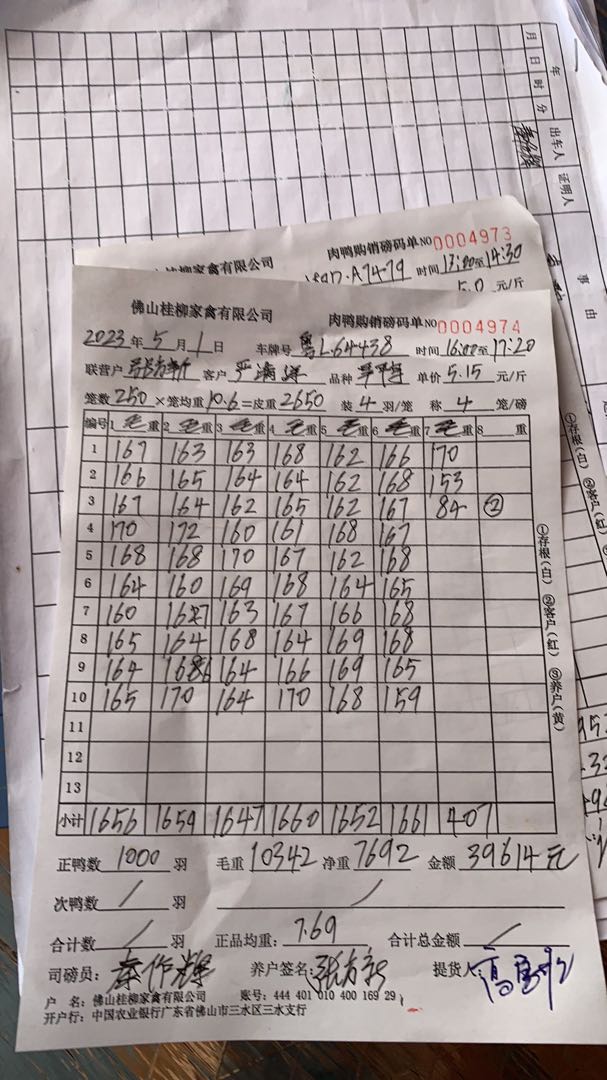 年
月 日 时 分 出车人 证明人 事由
佛山桂柳家禽有限公司 肉鸭购销磅码单 NO 0004973
A7479 时间 13:00至14:30
5.0 元/斤
佛山桂柳家禽有限公司 肉鸭购销磅码单NO 0004974
2023年5月1日 车牌号 粤L64438 时间 16:00至17:20
联营户 张方新 客户 品种 单价 5.15 元/斤
笼数 250 ×笼均重 10.6=皮重 2650 装 4 羽/笼 称 4 笼/磅
编号 1 毛重 2 毛重 3 毛重 4 毛重 5 毛重 6 毛重 7 毛重 8 重
1 167 163 163 168 162 166 170
2 166 165 164 164 162 168 153
3 167 164 162 165 162 167 84 ②
4 170 172 160 161 168 167
5 168 168 170 167 162 168
6 164 160 169 168 164 165
7 160 167 163 167 166 168
8 165 164 168 164 169 168
9 164 166 164 166 169 165
10 165 170 164 170 168 159
11
12
13
小计 1656 1659 1647 1660 1652 1661 407
正鸭数 1000 羽 毛重 10342 净重 7692 金额 39614元
次鸭数 / 羽 /
合计数 / 羽 正品均重: 7.69 合计总金额 /
司磅员: 秦作辉 养户签名: 张方新 提货人:
户 名: 佛山桂柳家禽有限公司 账号: 444 401 010 400 169 29
开户行: 中国农业银行广东省佛山市三水区三水支行
①存根(白) ②客户(红) ③养户(黄)
①存根(白) ②客户(红)